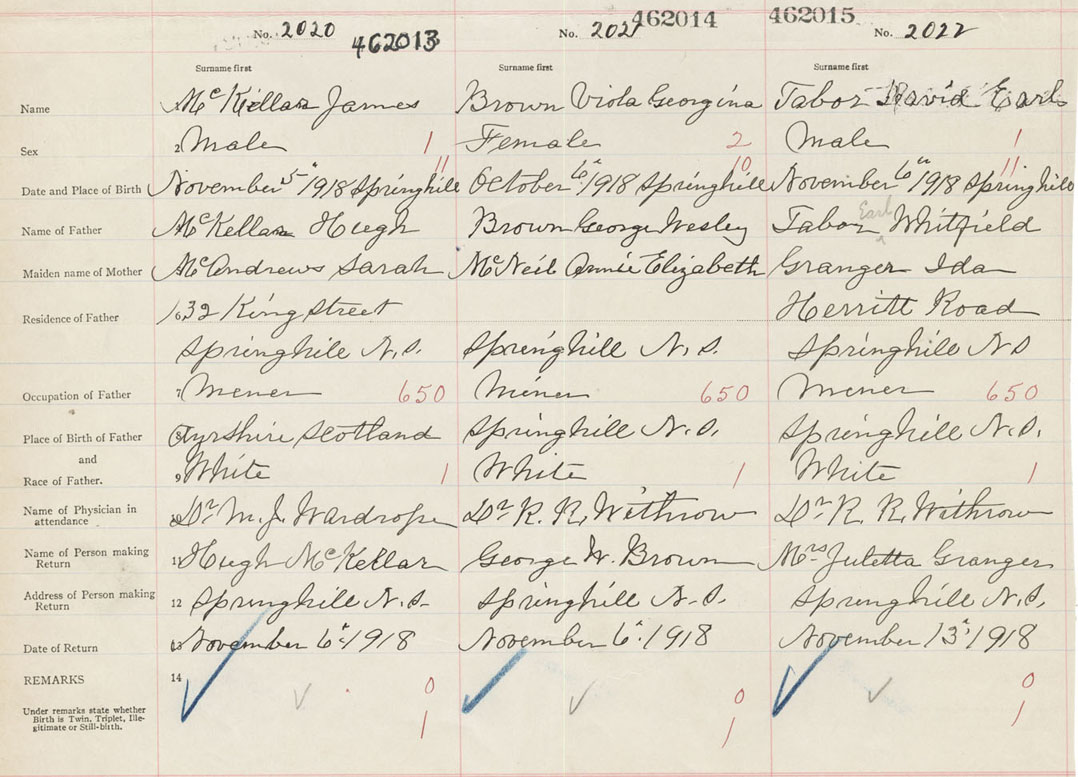 No. 2020 462013 No. 2021 462014 462015 No. 2022
Surname first Surname first Surname first
Name McKellar James Brown Viola Georgina Tabor David Earl
Sex 2 Male 1 Female 2 Male 1
11 10 11
Date and Place of Birth November 5th 1918 Springhill October 6th 1918 Springhill November 6th 1918 Springhill
Earl
Name of Father McKellar Hugh Brown George Wesley Tabor Whitfield
Maiden name of Mother McAndrews Sarah McNeil Annie Elizabeth Granger Ida
Residence of Father 6 32 King Street Herritt Road
Springhill N.S. Springhill N.S. Springhill NS
Occupation of Father 7 Miner 650 Miner 650 Miner 650
Place of Birth of Father 8 Ayrshire Scotland Springhill N.S. Springhill N.S.
and
Race of Father. 9 White 1 White 1 White 1
Name of Physician in
attendance 10 Dr M. J. Wardrope Dr R. R. Withrow Dr R. R. Withrow
Name of Person making
Return 11 Hugh McKellar George W. Brown Mrs Juletta Granger
Address of Person making
Return 12 Springhill N.S. Springhill N.S. Springhill N.S.
Date of Return 13 November 6th 1918 November 6th 1918 November 13th 1918
REMARKS 14 0 0 0
Under remarks state whether
Birth is Twin, Triplet, Ille-
gitimate or Still-birth. 1 1 1